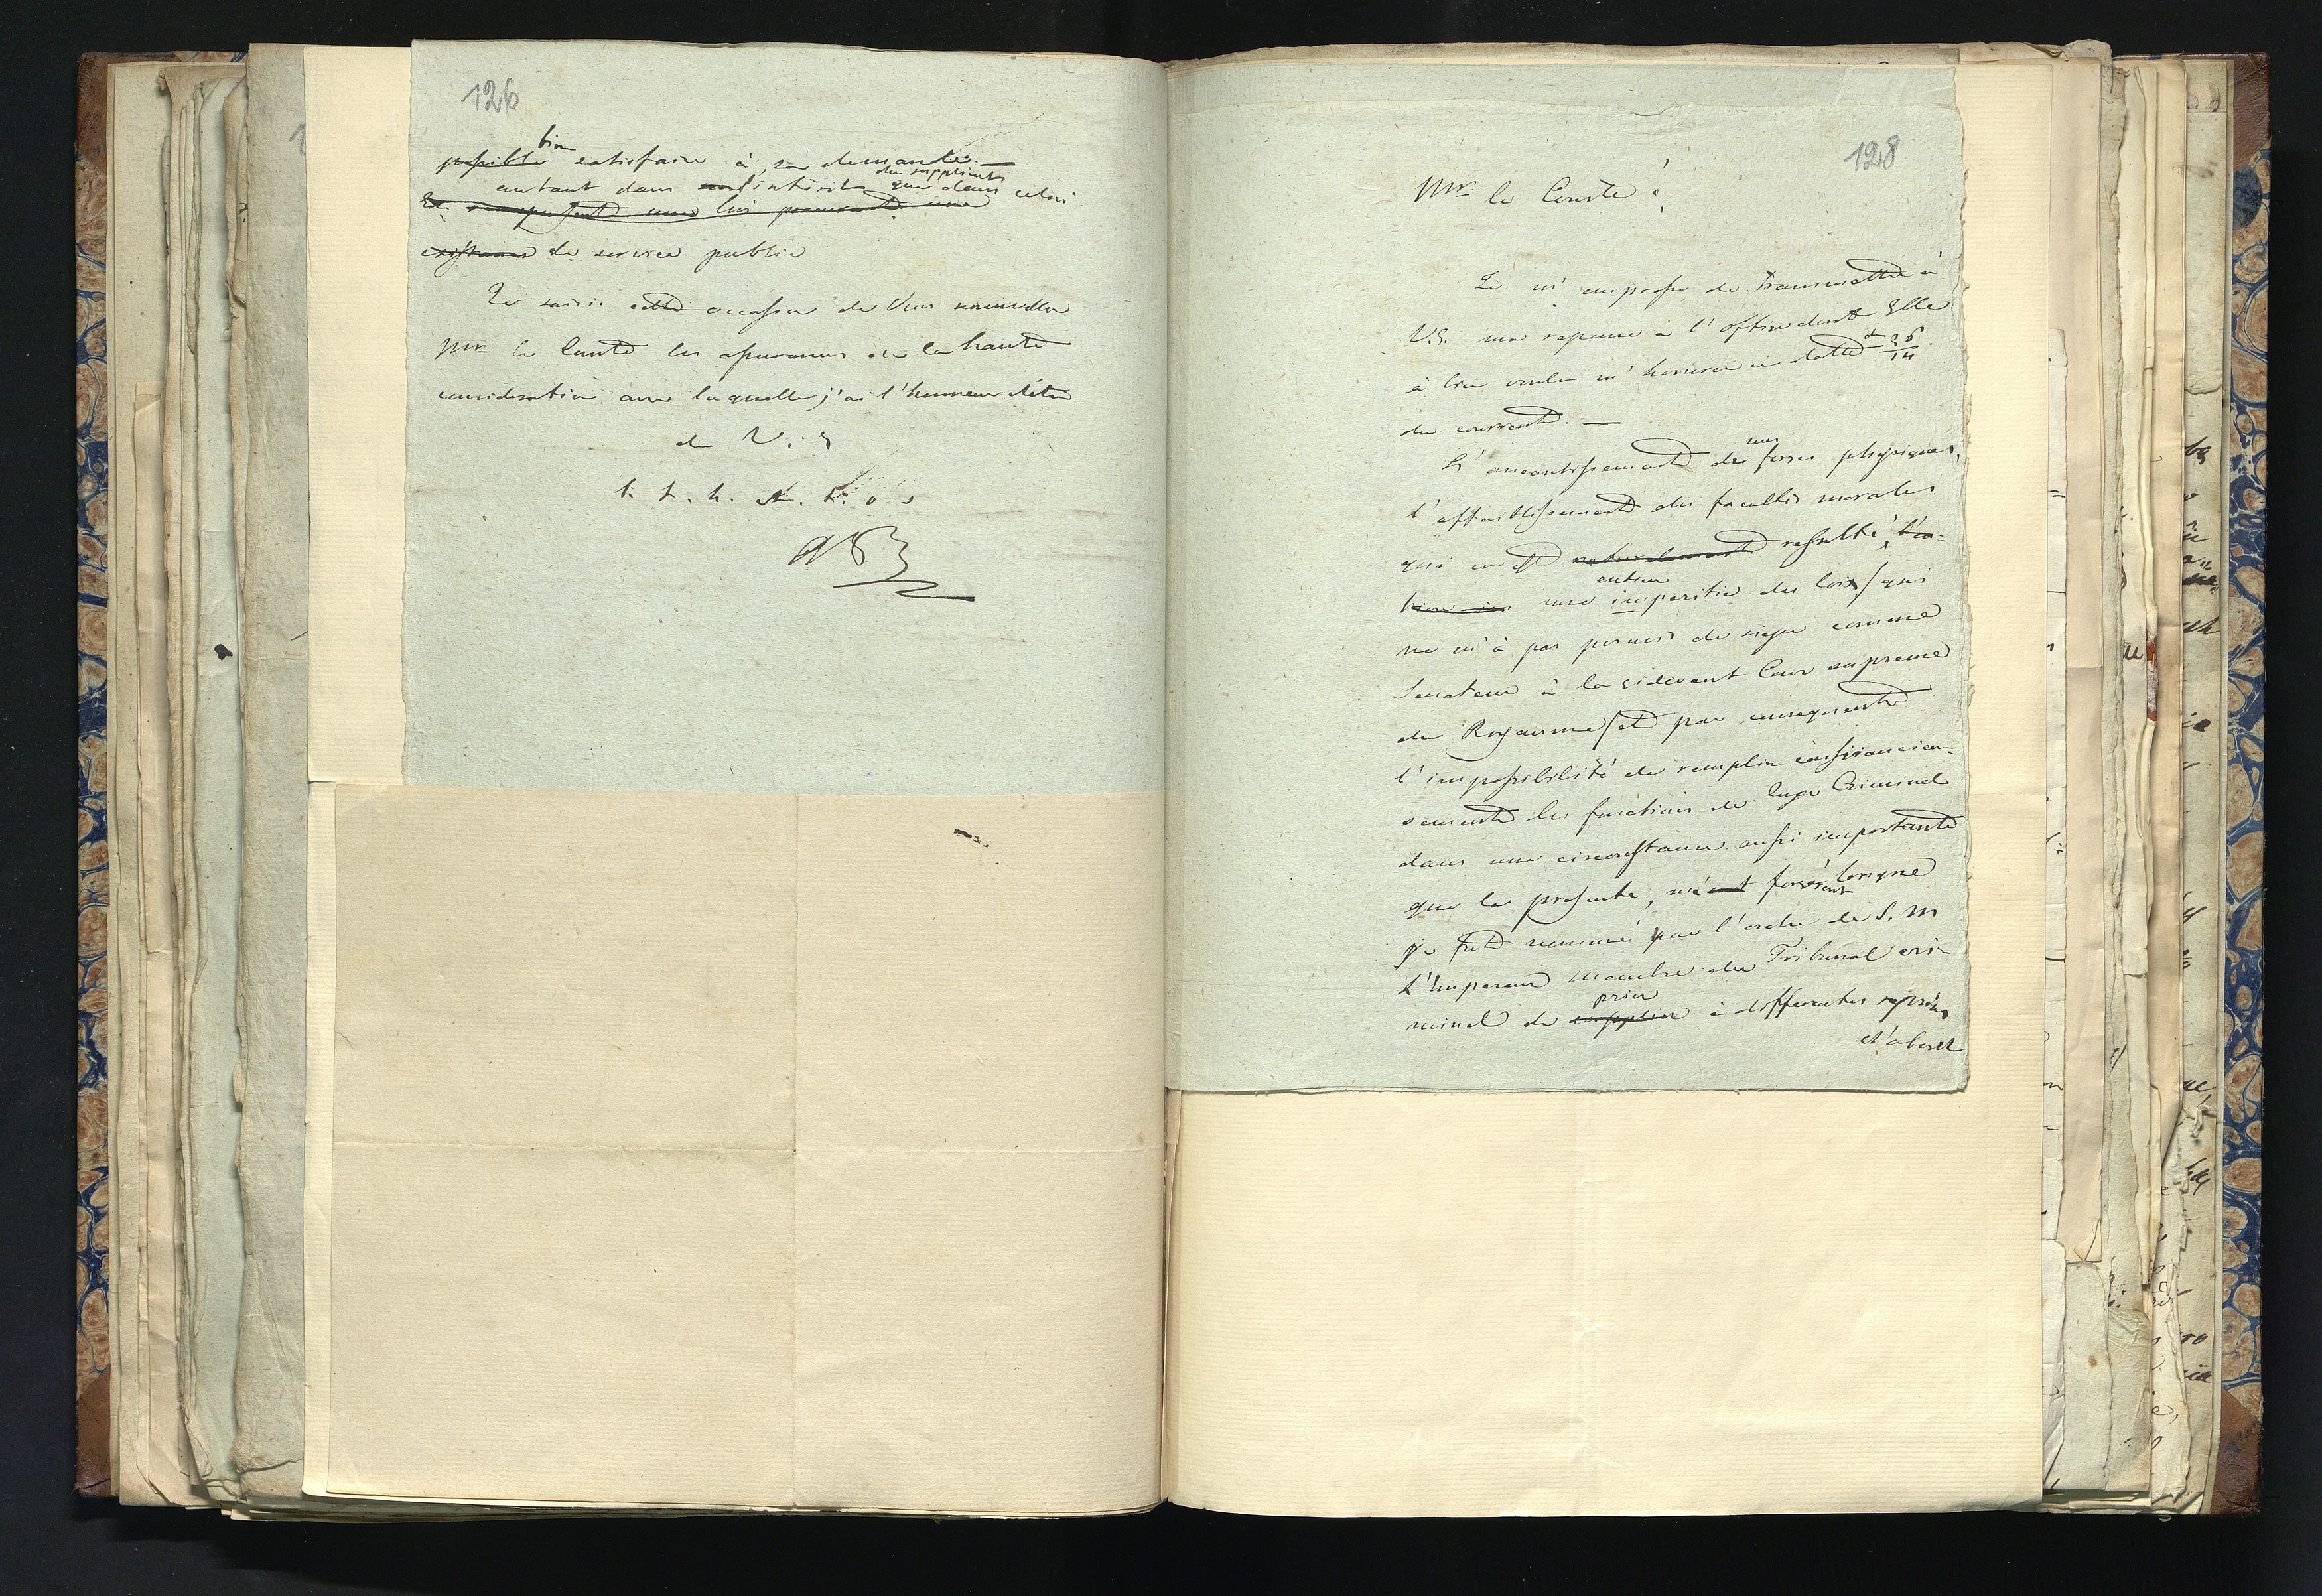 126
bien
possible satisfaire à sa demande. —
du suppliant
autant dans l'intérêt que dans celui
une loi une
existence de service public
Je saisis cette occasion de Vous renouveller
Mr le Comte les assurances de la haute
consideration avec laquelle j'ai l'honneur d'être
de V. E
l. t. h. & t. o. s
128
Mr le Comte!
Je m'empresse de Transmettre à
V.E. ma reponse à l'office dont Elle
à bien voulu m'honorer en datte de 26/14
du courrent. —
L'aneantissement de mes forces physiques,
l'affaiblissement des facultés morales
qui en est naturelement resulté,
entiere
une imperitie des loix / qui
ne m'à pas permis de sieger comme
Senateur à la cidevant Cour supreme
du Royaume / et par consequent
l'impossibilité de remplir consciencieu-
sement les fonctions de Juge Criminel
dans une circonstance aussi importante
que la presente, m'ont forcé lorsque
je fut nommé par l'ordre de S. M
l'Empereur membre du Tribunal cri-
prier
minel de supplier à differentes reprises
d'abord